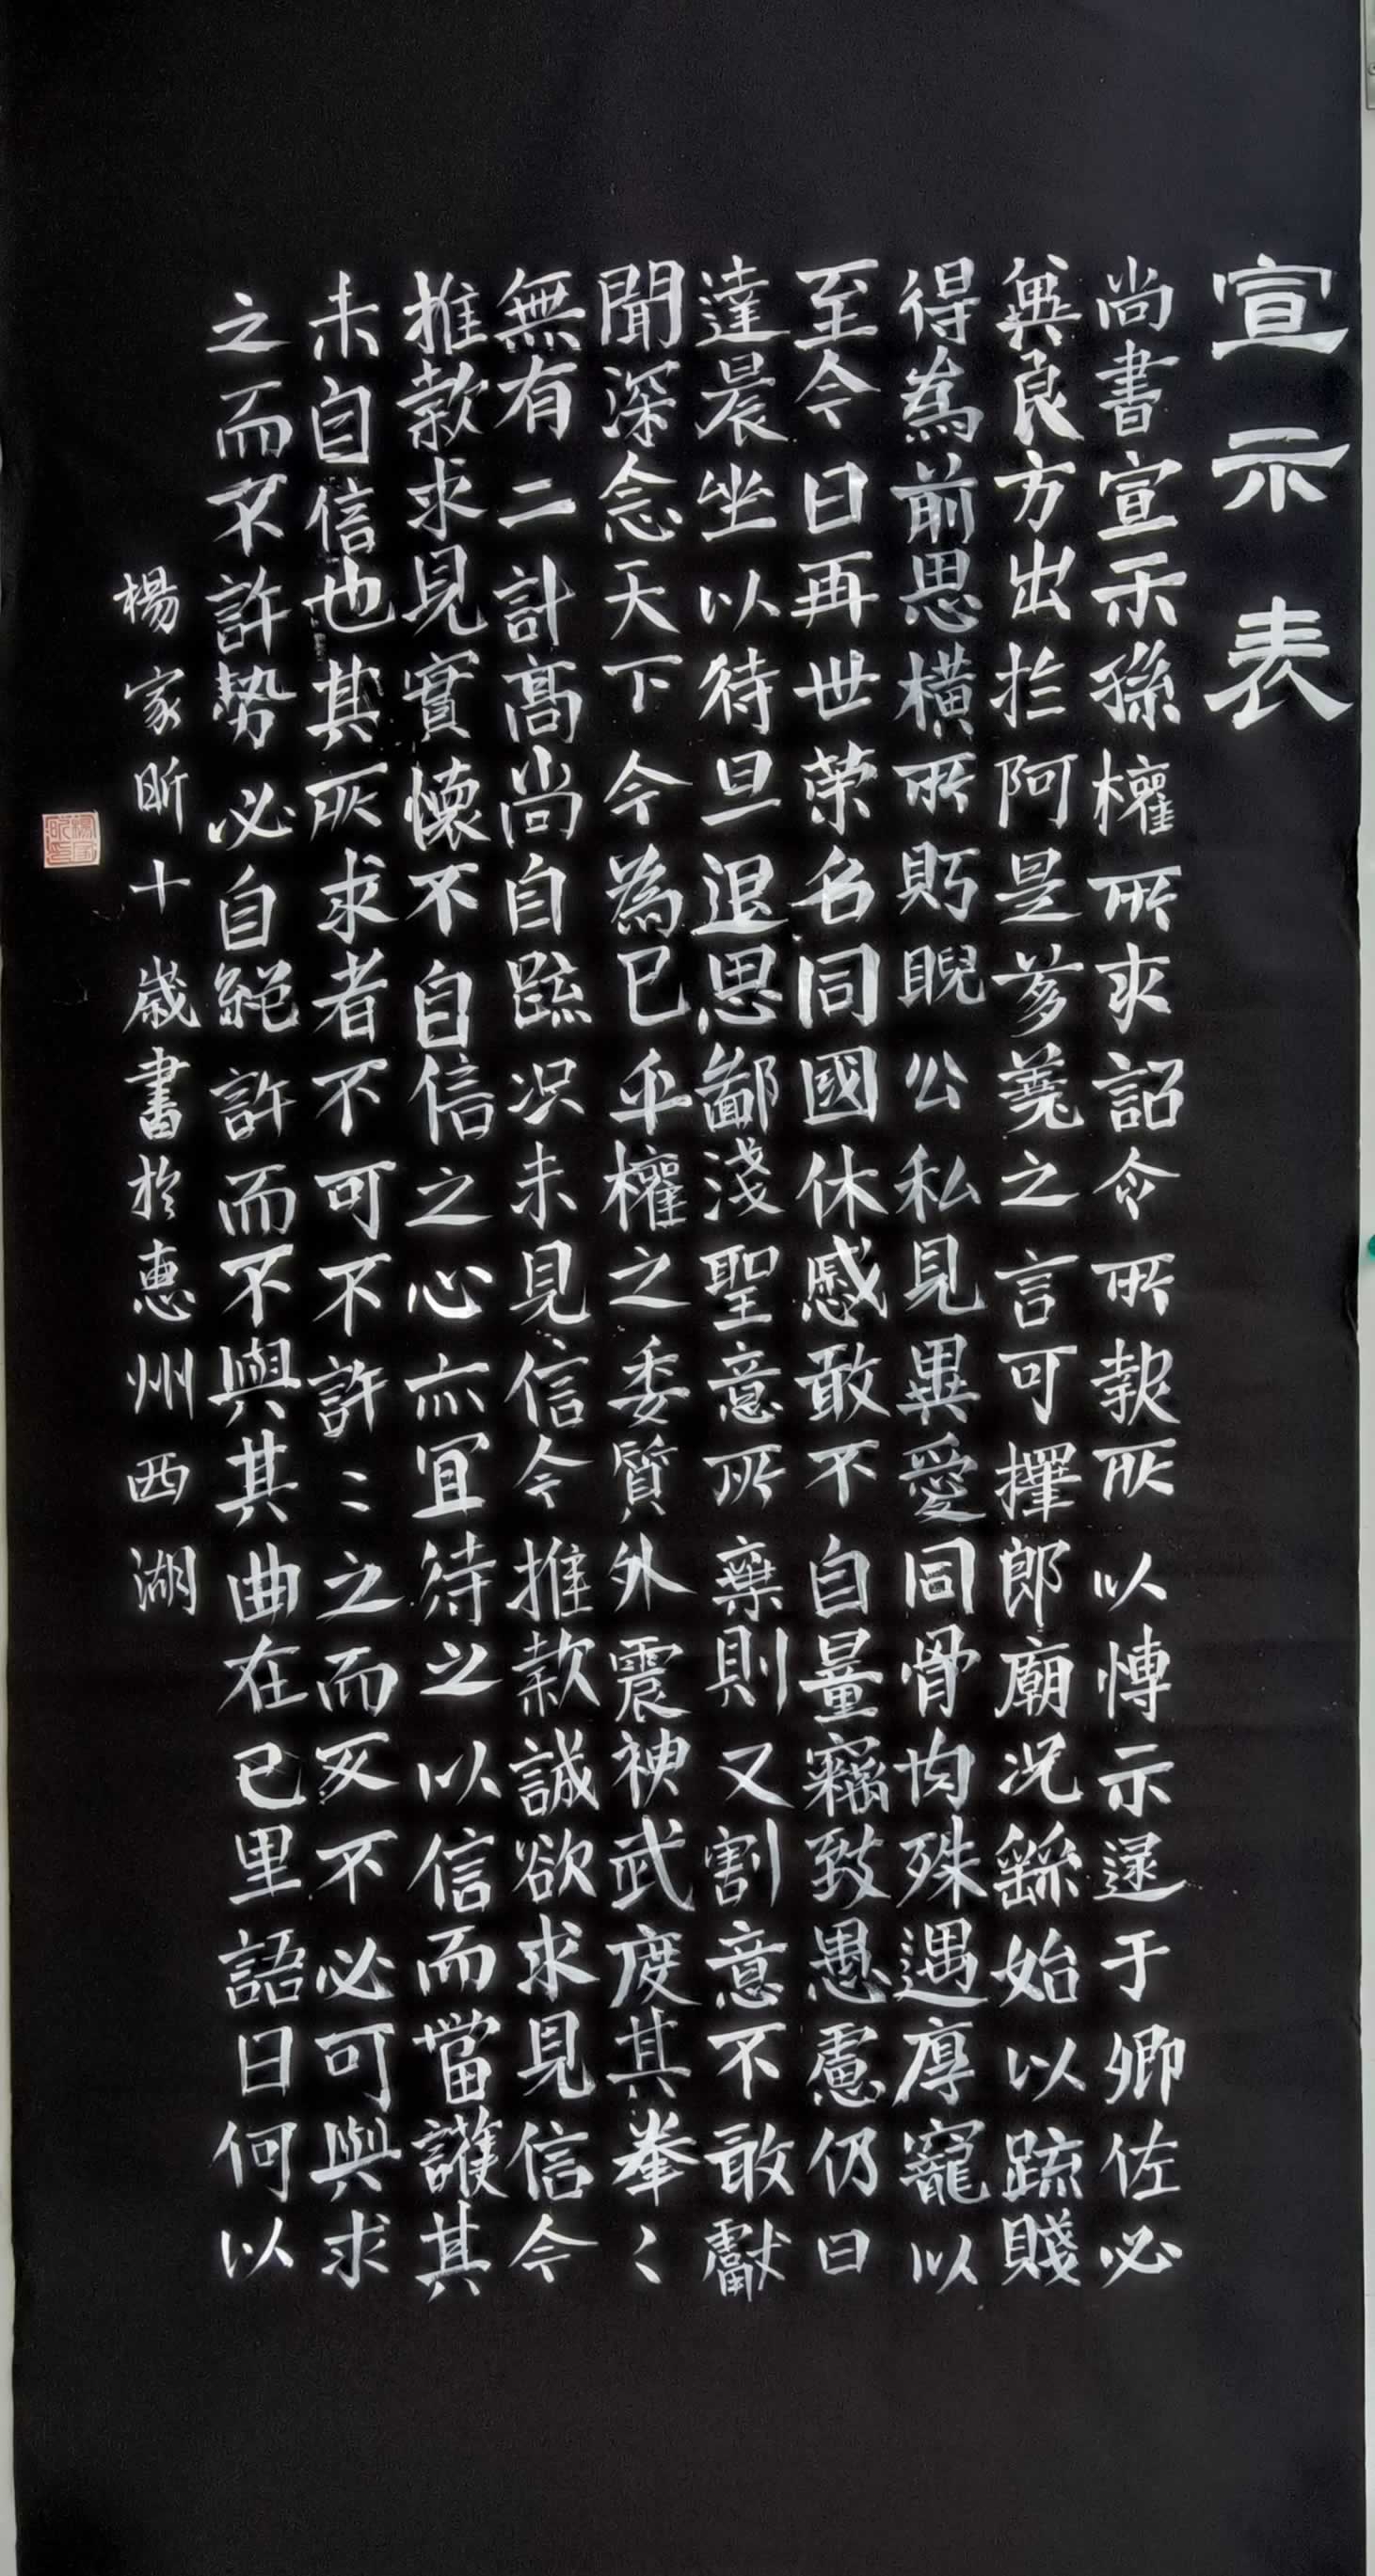 宣示表
尚書宣示孫權所求詔令所報所以博示逮于卿佐必
冀良方出於阿是芻蕘之言可擇郎廟況繇始以疏賤
得為前思橫所眄睨公私見異愛同骨肉殊遇厚寵以
至今日再世荣名同國休慼敢不自量竊致愚慮仍日
達晨坐以待旦退思鄙淺聖意所棄則又割意不敢獻
聞深念天下今為已平權之委質外震神武度其拳〻
無有二計高尚自疏況未見信今推款誠欲求見信今
推款求見實懷不自信之心亦宜待之以信而當護其
未自信也其所求者不可不許〻之而反不必可與求
之而不許勢必自絕許而不與其曲在已里語曰何以
楊家昕十歲書於惠州西湖